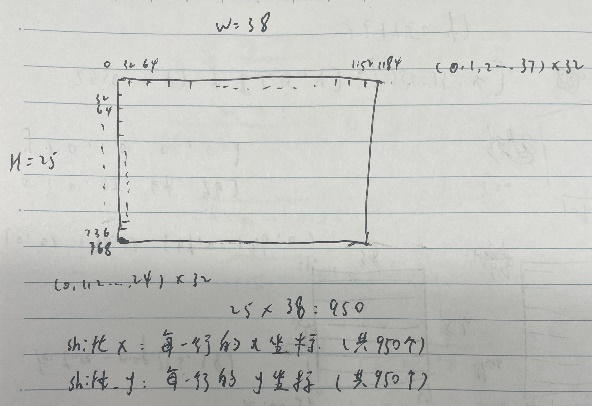 W=38
0 32 64 1152 1184 (0,1,2...37)×32
32
64
H=25
736
768
(0,1,2...24)×32
25×38=950
shift x:每一行的x坐标(共950个)
shift_y:每一行的y坐标(共950个)